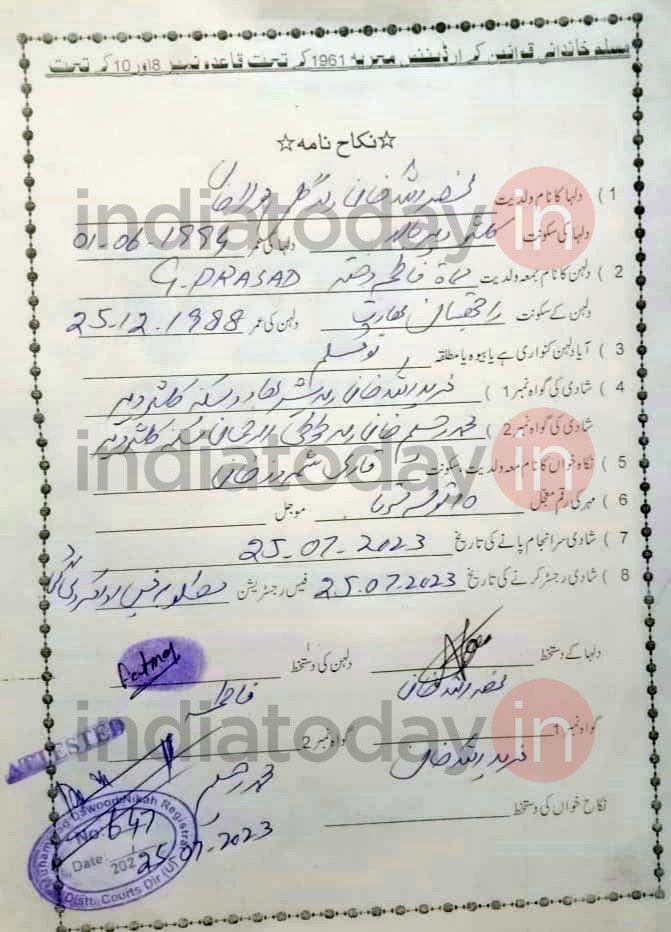 مسلم خاندانی قوانین کے آرڈیننس مجریہ 1961 کے تحت قاعدہ نمبر 8 اور 10 کے تحت
☆نکاح نامہ☆
1 ) دلہا کا نام ولدیت نصر اللہ خان ولد گل مولا خان
دلہا کی سکونت دلہا کی عمر 01-06-1994
2 ) دلہن کا نام بمعہ ولدیت مسماۃ فاطمہ دختر G. PRASAD
دلہن کے سکونت راجھستان بھارت دلہن کی عمر 25.12.1988
3 ) آیا دلہن کنواری ہے یا بیوہ یا مطلقہ نو مسلم
4 ) شادی کی گواہ نمبر 1 فرید اللہ خان ولد
شادی کی گواہ نمبر 2 محمد رحیم خان ولد
5 ) نکاہ خواں کا نام معہ ولدیت سکونت قاری شمروز خان
6 ) مہر کی رقم معجل موجل
7 ) شادی سرانجام پانے کی تاریخ 25-07-2023
8 ) شادی رجسٹر کرنے کی تاریخ 25.07.2023 فیس رجسٹریشن
دلہا کے دستخط دلہن کی دستخط Fatima
نصر اللہ خان فاطمہ
گواہ نمبر 1 گواہ نمبر 2
فرید اللہ خان محمد رحیم
نکاح خواں کی دستخط
ATTESTED
Muhammad Dawood Nikah Registrar
No: 647
Date: 202
25.07.2023
Distt: Courts Dir (U)
indiatoday.in
indiatoday.in
indiatoday.in